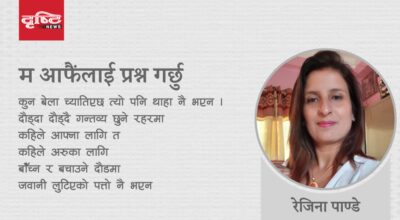 दृष्टि
NEWS
म आफैंलाई प्रश्न गर्छु
कुन बेला च्यातिएछ त्यो पनि थाहा नै भएन ।
दौड्दा दौड्दै गन्तव्य छुने रहरमा
कहिले आफ्ना लागि त
कहिले अरुका लागि
बाँच्न र बचाउने दौडमा
जवानी लुटिएको पत्तो नै भएन
रेजिना पाण्डे